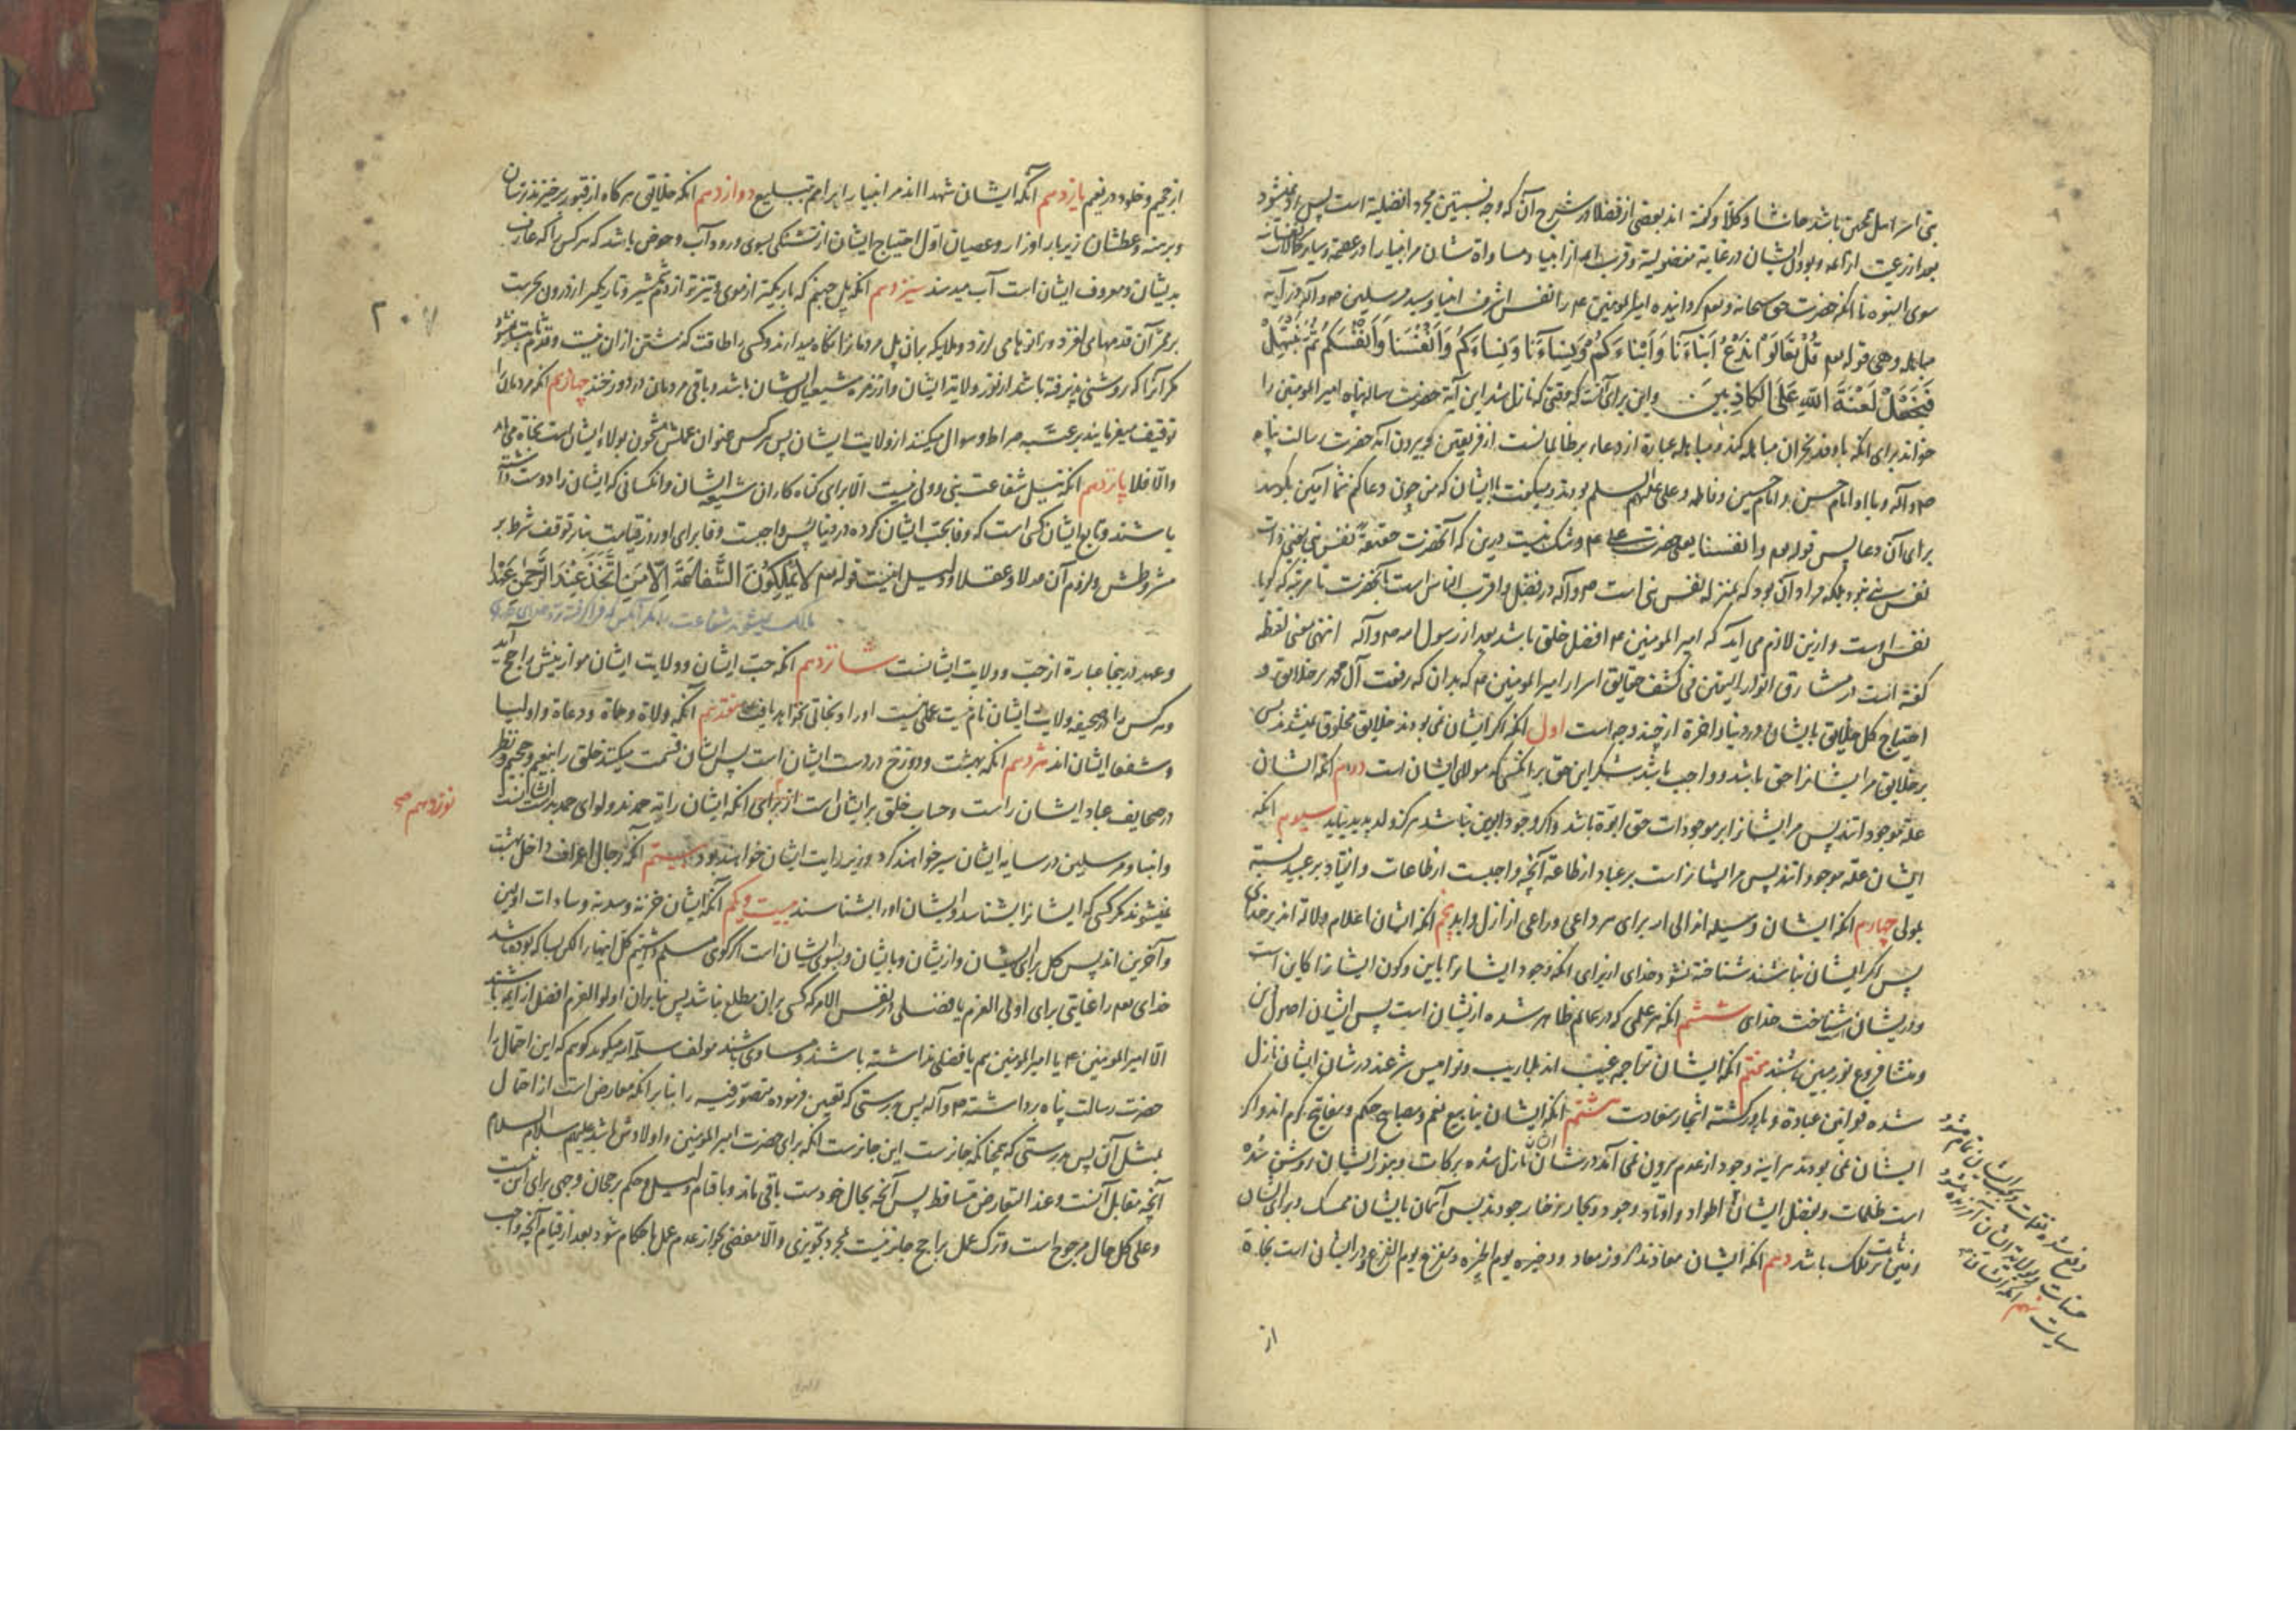 بنی اسرائیل نحن باشد حاشا و کلا و گفته اند بعضی از فضلا در شرح آن که وجه نسبتین مجرد افضلیة است پس
سوی النبوه تا انکه حضرت حق سبحانه و تعم کردانیده امیر المومنین ع م را نفس اشرف انبیا و سید مرسلین ص م و آله در آیه
مباهله و هی قوله تعم قُلْ تَعَالَوْا نَدْعُ اَبْنَآءَنَا وَاَبْنَآءَكُمْ وَنِسَآءَنَا وَنِسَآءَكُمْ وَاَنْفُسَنَا وَاَنْفُسَكُمْ ثُمَّ نَبْتَهِلْ
فَنَجْعَلْ لَعْنَةَ اللّٰهِ عَلَى الْكَاذِبِينَ واین برای آنست که وقتی که نازل شد این آیة حضرت رسالتپناه امیر المومنین را
خواند برای انکه با وفد نجران مباهله کند و مباهله عبارة از دعاء بر ظالمانست از فریقین و بیرون آمد حضرت رسالت پناه
ص م و آله و با او امام حسن و امام حسین و فاطمه و علی علیهم السلم بودند و میکفت با ایشان که من چون دعا کنم شما آمین بکویید
برای آن دعا پس قوله تعم و انفسنا یعنی حضرت علی ع م و شک نیست درین که آنحضرت حقیقةً نفس نبی یعنی ذات
نفس نبی نبود بلکه مراد آن بود که بمنزله نفس نبی است ص م و آله در فضل و اقرب الناس است بآنحضرت تا مرتبه که کویا
نفس اوست و ازین لازم می آید که امیر المومنین ع م افضل خلق باشد بعد از رسول الله ص م و آله انتهی معنی لفظه
کفته است در مشارق انوار الیقین فی کشف حقایق اسرار امیر المومنین ع م که بدان که رفعت آل محمد بر خلایق و
احتیاج کل خلایق بایشان در دنیا و اخرة از چند وجه است اول انکه اگر ایشان نمی بودند خلایق مخلوق نمیشدند پس
بر خلایق مر ایشانرا حق باشد و واجب باشد شکر این حق بر انکسی که مولای ایشان است دوم انکه ایشان
علة موجوداتند پس مر ایشانرا بر موجودات حق ابوة باشد و اکر وجود ابوین نباشد هرکز ولد پدید نیاید سیوم انکه
ایشان علة موجوداتند پس مر ایشانراست بر عباد از طاعة آنچه واجبست از طاعات و انقیاد بر عبید نسبة
بمولی چهارم انکه ایشان وسیله اند الی الله برای هر داعی و راعی از ازل و ابد پنجم انکه ایشان اعلام و دلالة اند بر خدای
پس اکر ایشان نباشند شناخته نشود خدای از برای انکه وجود ایشانرا باین و کون ایشانرا کاین است
و در ایشان شناخت خدای ششم انکه هر علمی که در عالم ظاهر شده از ایشان است پس ایشان اصول این
و منشا فروع نور مبین باشند هفتم انکه ایشان تراجم غیب اند بلا ریب و نوامیس شرعند در شان ایشان نازل
شده قوانین عبادة و بارور کشته اشجار سعادت هشتم انکه ایشان ینابیع نعم و مصابیح حکم و مفاتیح کرم اند و اکر
ایشان نمی بودند هر اینه وجود از عدم بیرون نمی آمد در شان ایشان نازل شده برکات و بنور ایشان روشن شده
است ظلمات و بفضل ایشان اطواد و اوتاد وجود و بحار زخار جودند پس آسمان بایشان ممسک و برای ایشان
زمین ثابت باشد دهم انکه ایشان معاذند روز معاد و ذخیره یوم الجزه و مفزع یوم الفزع و در ایشان است نجاة
سیات نهم انکه ایشان
از
از جحیم و خلود در نعیم یازدهم آنکه ایشان شهدااند مر انبیا را بر امم بتبلیغ دوازدهم انکه خلایق هر کاه از قبور برخیزند ترسان
و برهنه و عطشان زیر بار اوزار و عصیان اول احتیاج ایشان از تشنکی بسوی ورود آب و حوض باشد که هر کس را که عارف
بدیشان و معروف ایشان است آب میدهند سیزدهم انکه پل جهنم که باریکتر از موی و تیزتر از دم شمشیر و تاریکتر از درون بحرست
بر ممر آن قدمهای لغزد و رانوها می لرزد و ملایکه بران پل مردمانرا نکاه میدارند و کسی را طاقت کذشتن ازان نیست و قدم ثابت نشود
مکر آنرا که روشنی پذیرفته باشد از نور ولایة ایشان و از زمره شیعیان ایشان باشد و باقی مردمان در دوزخند چهاردهم انکه مردمان را
توقیف میفرمایند بر عتبه صراط و سوال میکنند از ولایت ایشان پس هر کس عنوان عملش مشحون بولاء ایشان است نجاة می یابد
والّا فلا پانزدهم انکه نیل شفاعت نبی و ولی نیست الّا برای کناه کاران شیعه ایشان و انکسانی که ایشان را دوست داشته
باشند و تابع ایشان کسی است که وفا بحب ایشان کرده در دنیا پس واجبست وفا برای او روز قیامت بنابر توقف شرط بر
مشروطش و لزوم آن مر او را عقلا و دلیل اینست قوله تعم لَا يَمْلِكُونَ الشَّفَاعَةَ اِلَّا مَنِ اتَّخَذَ عِنْدَ الرَّحْمٰنِ عَهْدًا
مالک نمیشوند شفاعت را مکر آنکس که فرا گرفته نزد خدای عهدی
و عهد دریجا عبارة از حب و ولایت ایشانست شانزدهم انکه حب ایشان و ولایت ایشان موازینش راجح آید
و هر کس را در صحیفه ولایت ایشان نام نیست عملی نیست او را و نجاتی نخواهد یافت هفتدهم آنکه ولاة و حماة و دعاة و اولیا
و شفعا ایشان اند هژدهم انکه بهشت و دوزخ در دست ایشان است پس ایشان قسمت میکنند خلق را بنعیم و جحیم و نظر
در صحایف عباد ایشان راست و حساب خلق بر ایشان است از برای انکه ایشان رایة حمدند و لوای حمد بدست ایشانست
نوزدهم صح
وانبیا و مرسلین در سایه ایشان سیر خواهند کرد و زیر رایت ایشان خواهند بود بیستم آنکه رجال اعراف داخل بهشت
نمیشوند مکر کسی که ایشانرا بشناسد و ایشان او را بشناسند بیست و یکم آنکه ایشان خزنه و سدنة و سادات اولین
و آخرین اند پس کل برای ایشان و از ایشان و بایشان و بسوی ایشان است اکر کوی مسلم داشتیم کل اینها را لکن بسا که بوده باشد
خدای تعم را غایتی برای اولی العزم یا فضلی در نفس الامر که کسی بران مطلع نباشد پس بنا بران اولو العزم افضل از ایمه باشند
الّا امیر المومنین ع م یا امیر المومنین هم یا فضلی نداشته باشند و مساوی باشند مولف سلّمه الله میکوید کویم که این احتمال را
حضرت رسالت پناه برداشته ص م و آله پس بدرستی که تعیین فرموده متصور فیه را بنا بر انکه معارض است از احتمال
بمثل آن پس بدرستی که همچنانکه جائزست این جائزست انکه برای حضرت امیر المومنین و اولادش باشد علیهم سلام السلام
آنچه مقابل آنست و عند التعارض تساقط پس آنچه بحال خودست باقی ماند و با قیام دلیل و حکم برجحان وجهی برای این نیست
و علی کل حال مرجوح است و ترک عمل براجح جایز نیست بمجرد تجویزی والّا مفضی بجواز عدم عمل باحکام شود بعد از قیام آنچه واجب
۲۰۷